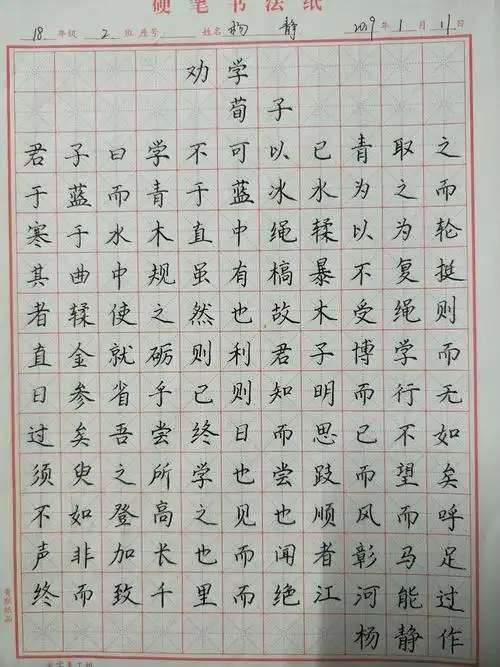 硬笔书法纸
18 年级 2 班 座号 姓名 杨静 2019年1月11日
劝学
荀子
君子曰学不可以已青取之
于蓝而青于蓝冰水为之而
寒于水木直中绳輮以为轮
其曲中规虽有槁暴不复挺
者輮使之然也故木受绳则
直金就砺则利君子博学而
日参省乎己则知明而行无
过矣吾尝终日而思已不如
须臾之所学也尝跂而望矣
不如登高之见也顺风而呼
声非加长也而闻者彰马足
终而致千里而绝江河能过
杨静作